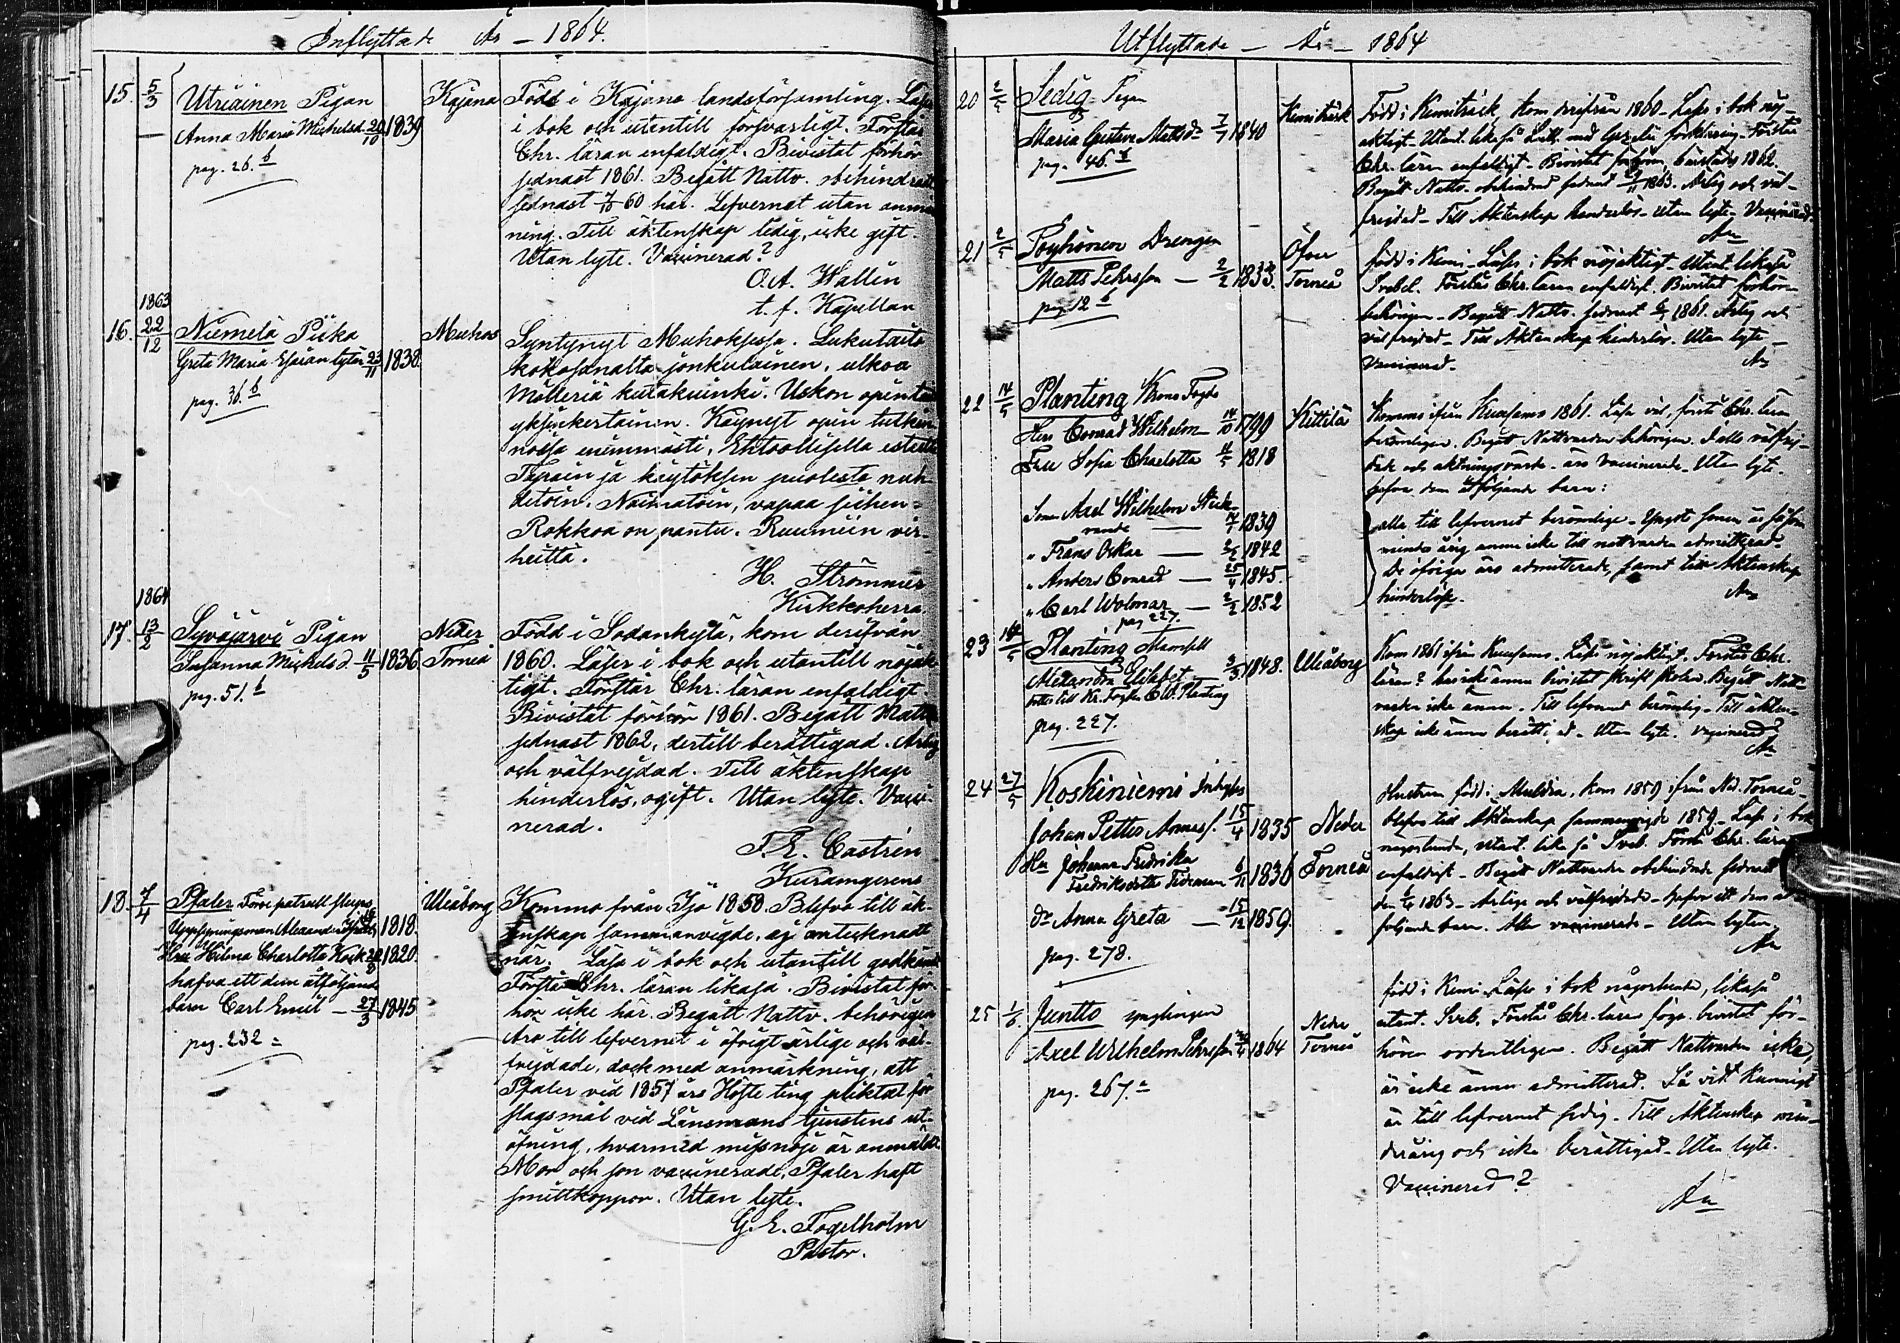 Inflyttade År - 1864.
15. 5/3 Utriainen Pigan
Anna Maria Michelsd. 20/10 1839
pag. 26. b
Kajana
Född i Kajana landsförsamling. Läser
i bok och utantill försvarligt. Förstår
Chr. läran enfaldigt. Bivistat förhör
sednast 1861. Begått Nattv. obehindradt
sednast 7/10 60 här. Lefvernat utan anmärk
ning. Till äktenskap ledig, icke gift.
Utan lyte. Vaccinerad?
O. A. Wallin
t. f. Kapellan
1863
16. 22/12 Niemelä Piika
Greta Maria Esaiantytär 23/11 1838.
pag. 36. b
Muhos
Syntynyt Muhoksessa. Lukutaito
kokosanalta jonkulainen, ulkoa
Mölleriä kutakuinki. Uskon opinta
yksinkertainen. Käynyt opin tutkin
nossa enimmästi, Ehtoollisella
Tapain ja käytöksen puolesta nuh
detoin. Naimatoin, vapaa siihen
Rokkoa on pantu. Ruumiin vir-
heittä.
H. Strömmer
Kirkkoherra.
1864
17. 13/2 Syväjärvi Pigan
Susanna Michelsd. 11/5 1836
pag. 51. b
Neder
Torneå
Född i Sodankylä, kom derifrån
1860. Läser i bok och utantill nöjak
tigt. Förstår Chr. läran enfaldigt.
Bivistat förhör 1861. Begått Nattv
sednast 1862, dertill berättigad. Ärlig
och välfrejdad. Till äktenskap
hinderlös, ogift. Utan lyte. Vacci-
nerad.
F. E. Castrén
Kyrkoherde
18. 7/4 Pfaler
Uppsyningsman Alexander 1818.
Hu Hilma Charlotta Kock 1820.
hafva ett dem åtföljande
barn Carl Emil - 27/3 1845
pag. 232 a
Uleåborg
Komma från Ijo 1858. Blefvo till äk-
tenskap sammanvigde, ej antecknadt
när. Läsa i bok och utantill godkändt
Förstå Chr. läran likaså. Bivistat för
hör icke här. Begått Nattv. behörigen
Äro till lefvernet i öfrigt ärlige och väl-
frejdade, dock med anmärkning, att
Pfaler vid 1857 års Höste ting pliktat för
slagsmål vid Länsmans tjenstens ut-
öfning, hvarmed missnöje är anmäldt.
Mor och son vaccinerade, Pfaler haft
smittkoppor. Utan lyte.
G. E. Fogelholm
Pastor.
Utflyttade - År - 1864
20 2/5 Sedig Pigan
Maria Gustava Mattsdr 7/7 1840
pag. 46. b
Kemiträsk
Född i Kemiträsk, kom derifrån 1860. Läser i bok nöj-
aktigt. Utant. likaså Luth. med förklaring. Förstår
Chr. läran enfaldigt. Bivistat förhören, sednast 1862.
Begått Nattv. obehindrad sednast 1863. Ärlig och väl-
frejdad. Till Äktenskap hinderlös. Utan lyte. Vaccinerad.
21 2/5 Poyhönen Drengen
Matts Pehrsson - 2/2 1833.
pag. 12 b
Öfver
Torneå
Född i Kemi. Läser i bok nöjaktigt. Utant. likaså
Svebel. Förstår Chr. läran enfaldigt. Bivistat förhör
behörigen. Begått Nattv. sednast 1861. Ärlig och
välfrejdad. Till Äktenskap hinderlös. Utan lyte.
Vaccinerad.
22 14/5 Planting Krono Fogde
Herr Conrad Wilhelm 14/10 1799
Fru Sofia Charlotta 4/5 1818
Son Axel Wilhelm Stude-
rande - 1839
" Frans Oskar - 1842
" Anders Conrad - 25/4 1845.
" Carl Wolmar - 2/2 1852
pag 227.
Kittilä
Kommo ifrån Kuusamo 1861. Läsa väl, förstå Chr. läran
berömligen. Begått Nattvarden behörigen. I allo välfrej-
dade och aktningsvärde. äro vaccinerade. Utan lyte.
hafva dem åtföljande barn:
alla till lefvernet berömlige. Yngste sonen är såsom
minderårig ännu icke till nattvarden admitterad.
De öfriga äro admitterade, samt till Äktenskap
hinderlöse.
23 14/5 Planting Mamsell
Alexandra Elisabet 3/5 1848.
dotter till Kr. Fogden C. W. Planting
pag. 227.
Uleåborg
Kom 1861 ifrån Kuusamo. Läser nöjaktigt. Förstår Chr.
läran? har icke ännu bivistat skriftskolan. Begått Natt-
varden icke ännu. Till lefvernet berömlig. Till äkten-
skap icke ännu berättigad. Utan lyte. vaccinerad?
24 27/5 Koskiniemi Inhyses
Johan Petter Annass. 15/4 1835
Hu Johanna Fredrika
Fredriksdotter 6/12 1836
Dr Anna Greta - 15/12 1859.
pag. 278.
Neder
Torneå
Hustrun född i Muldia, kom 1859 ifrån Ned. Torneå.
blefvo till Äktenskap sammanvigde 1859. Läsa i bok
någorlunda, utant. lika så Sveb. Förstå Chr. läran
enfaldigt. Begått Nattvarden obehindrade sednast
den 1863. Ärlige och välfrejdade. hafva ett dem åt-
följande barn. Alla vaccinerade. Utan lyten.
25 1/6 Juntto ynglingen
Axel Wilhelm Pehrsson 1864
pag. 267. a
Neder
Torneå
född i Kemi. Läser i bok någorlunda, likaså
utant. Sveb. Förstår Chr. läran bivistat för-
hören ordentligen. Begått Nattvarden icke,
är icke ännu admitterad. Så vidt kunnigt
är till lefvernet sedig. Till Äktenskap min-
derårig och icke berättigad. Utan lyte.
Vaccinerad?